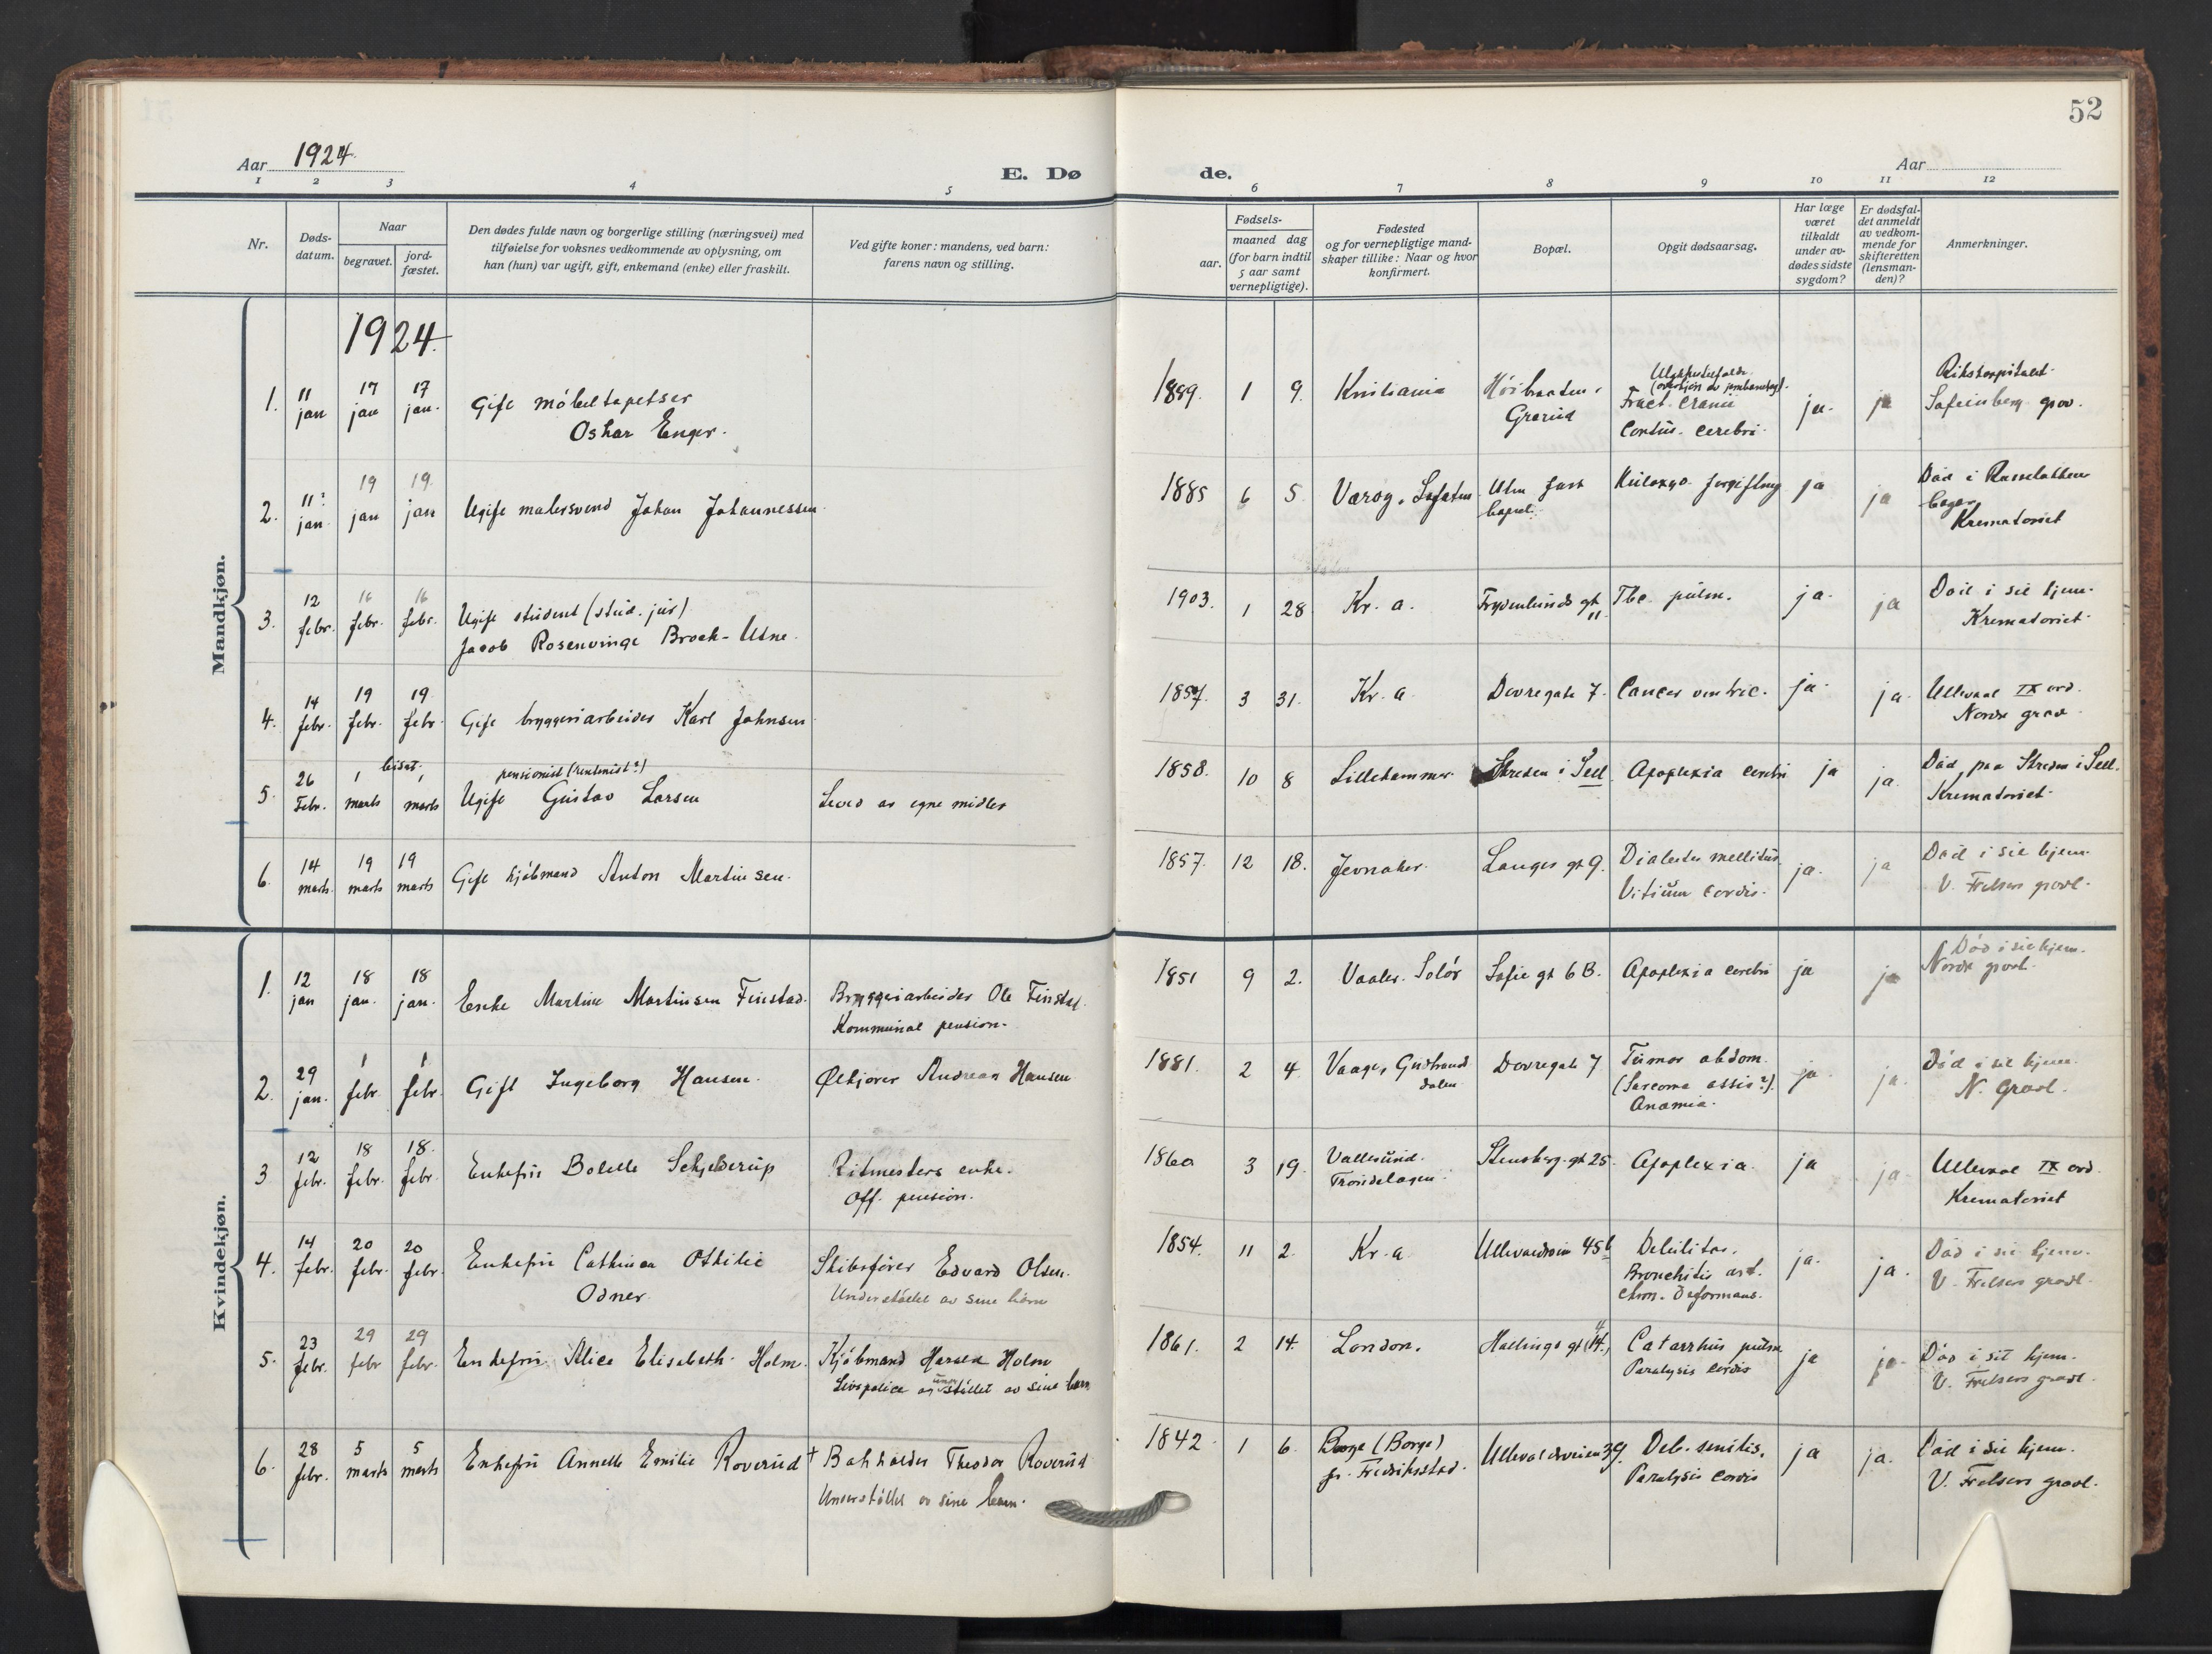 52
Aar 1924.
E. Dø de.
Aar
1 2 3 4 5 6 7 8 9 10 11 12
Nr.
Døds-
datum.
Naar
begravet.
jord-
fæstet.
Den dødes fulde navn og borgerlige stilling (næringsvei) med
tilføielse for voksnes vedkommende av oplysning, om
han (hun) var ugift, gift, enkemand (enke) eller fraskilt.
Ved gifte koner: mandens, ved barn:
farens navn og stilling.
Fødsels-
aar.
maaned dag
(for barn indtil
5 aar samt
vernepligtige).
Fødested
og for vernepligtige mand-
skaper tillike: Naar og hvor
konfirmert.
Bopæl.
Opgit dødsaarsag.
Har læge
været
tilkaldt
under av-
dødes sidste
sygdom?
Er dødsfal-
det anmeldt
av vedkom-
mende for
skifteretten
(lensman-
den)?
Anmerkninger.
Mandkjøn.
1924.
1. 11 jan 17 jan 17 jan.
Gift möbeltapetser
Oskar Enger.
1889. 1 9. Kristiania
Grorud
Fract. cranii
Contus. cerebri.
ja. ja
Rikshospitalet.
2. 11 jan 19 jan 19 jan
Ugift malersvend Johan Johannessen
1885 6 5. Værøy, Lofoten
Uten fast
bopæl.
Kuloxyd forgiftning ja ja
Død i
Krematoriet
3. 12 febr. 16 febr. 16 febr.
Ugift student (stud. jur)
Jacob Rosenvinge Broch-Utne.
1903. 1 28 Kr. a. Frydenlunds gt 11 Tbc. pulm. ja. ja
Död i sit hjem.
Krematoriet.
4. 14 febr. 19 febr. 19 febr.
Gift bryggeriarbeider Karl Johnsen
1857. 3 31. Kr. a. Dovregate 7. Cancer ventric. ja. ja.
Ullevaal IX avd.
Nordre grav
5. 26 Febr. 1 marts bisat. 1 marts
pensionist (rentenist?)
Ugift Gustav Larsen
Leved av egne midler
1858. 10 8 Lillehammer Apoplexia cerebri ja ja.
Krematoriet.
6. 14 marts. 19 marts 19 marts
Gift kjöbmand Anton Martinsen.
1857. 12 18. Jevnaker. Langes gt 9.
Diabetes mellitus
Vitium cordis.
ja. ja
Död i sit hjem.
V. Frelsers gravl.
Kvindekjøn.
1. 12 jan 18 jan. 18 jan.
Enke Martine Martinsen Finstad.
Bryggeriarbeider Ole Finstad.
Kommunal pension.
1851 9 2. Vaaler. Solör Sofie gt 6 B. Apoplexia cerebri ja ja
Död i sit hjem.
Nordre gravl.
2. 29 jan. 1 febr. 1 febr.
Gift Ingeborg Hansen.
Ølkjører Andreas Hansen
1881. 2 4. Vaage, Gudbrands
dalen
Dovregate 7
Tumor abdom.
(Sarcoma ossis?).
Anæmia.
ja. ja.
Död i sit hjem.
N. Gravl.
3 12 febr. 18 febr. 18. febr.
Enkefru Bolette Schjelderup
Ritmesters enke.
Off. pension.
1860 3 19. Vallersund.
Trøndelagen.
Stensberg. gt 25. Apoplexia. ja ja
Ullevaal IX avd.
Krematoriet
4. 14 febr. 20 febr. 20 febr.
Enkefru Cathinca Othilie
Odner.
Skibsförer Edvard Olsen.
Understöttet av sine barn
1854. 11 2. Kr. a Ullevaalsvei 45 b
Debilitas.
Bronchitis art.
chron. deformans.
ja. ja.
Död i sit hjem.
V. Frelsers gravl.
5. 23 febr. 29 febr 29 febr.
Enkefru Alice Elisabeth Holm.
Kjöbmand Harald Holm
Livspolice og understöttet av sine barn
1861. 2 14. London. Hallings gt
Catarrhus pulm
Paralysis cordis
ja ja
Död i sit hjem.
V. Frelsers gravl.
6. 28 febr. 5 marts 5 marts
Enkefru Annette Emilie Roverud
† Bokholder Theodor Roverud
Understöttet av sine barn.
1842. 1 6. Borge (Borge)
pr. Fredriksstad.
Ullevaalsveien 39.
Deb. senilis.
Paralysis cordis
ja ja.
Död i sit hjem.
V. Frelsers gravl.